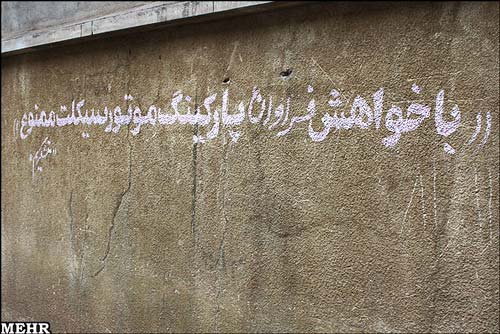 (( با خواهش فراوان پارکینگ موتورسیکلت ممنوع ))
متشکریم
MEHR